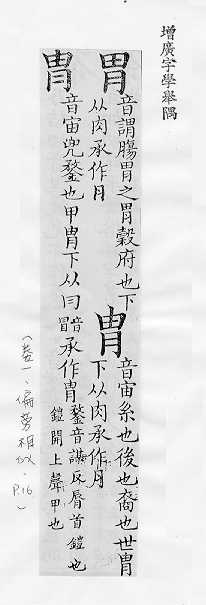 增廣字學舉隅
胃
音謂腸胃之胃穀府也下
从肉承作月
胄
音宙系也後也裔也世胄
下从肉承作月
冑
音宙兜鍪也甲冑下从冃
音冒
承作冑
鍪音謨反脣首鎧也
鎧開上聲甲也
(卷一、偏旁相似. P.16)